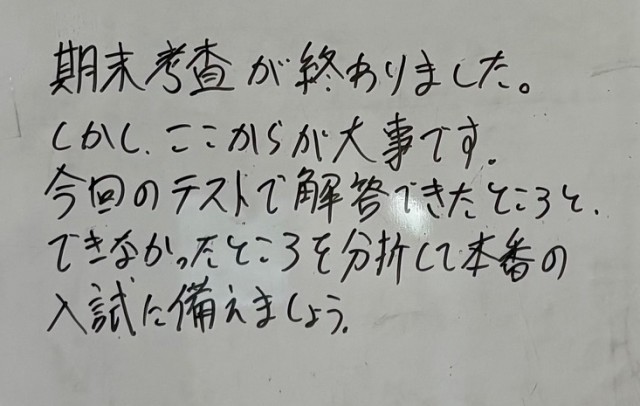 期末考査が終わりました。
しかし、ここからが大事です。
今回のテストで解答できたところと、
できなかったところを分折して本番の
入試に備えましょう。